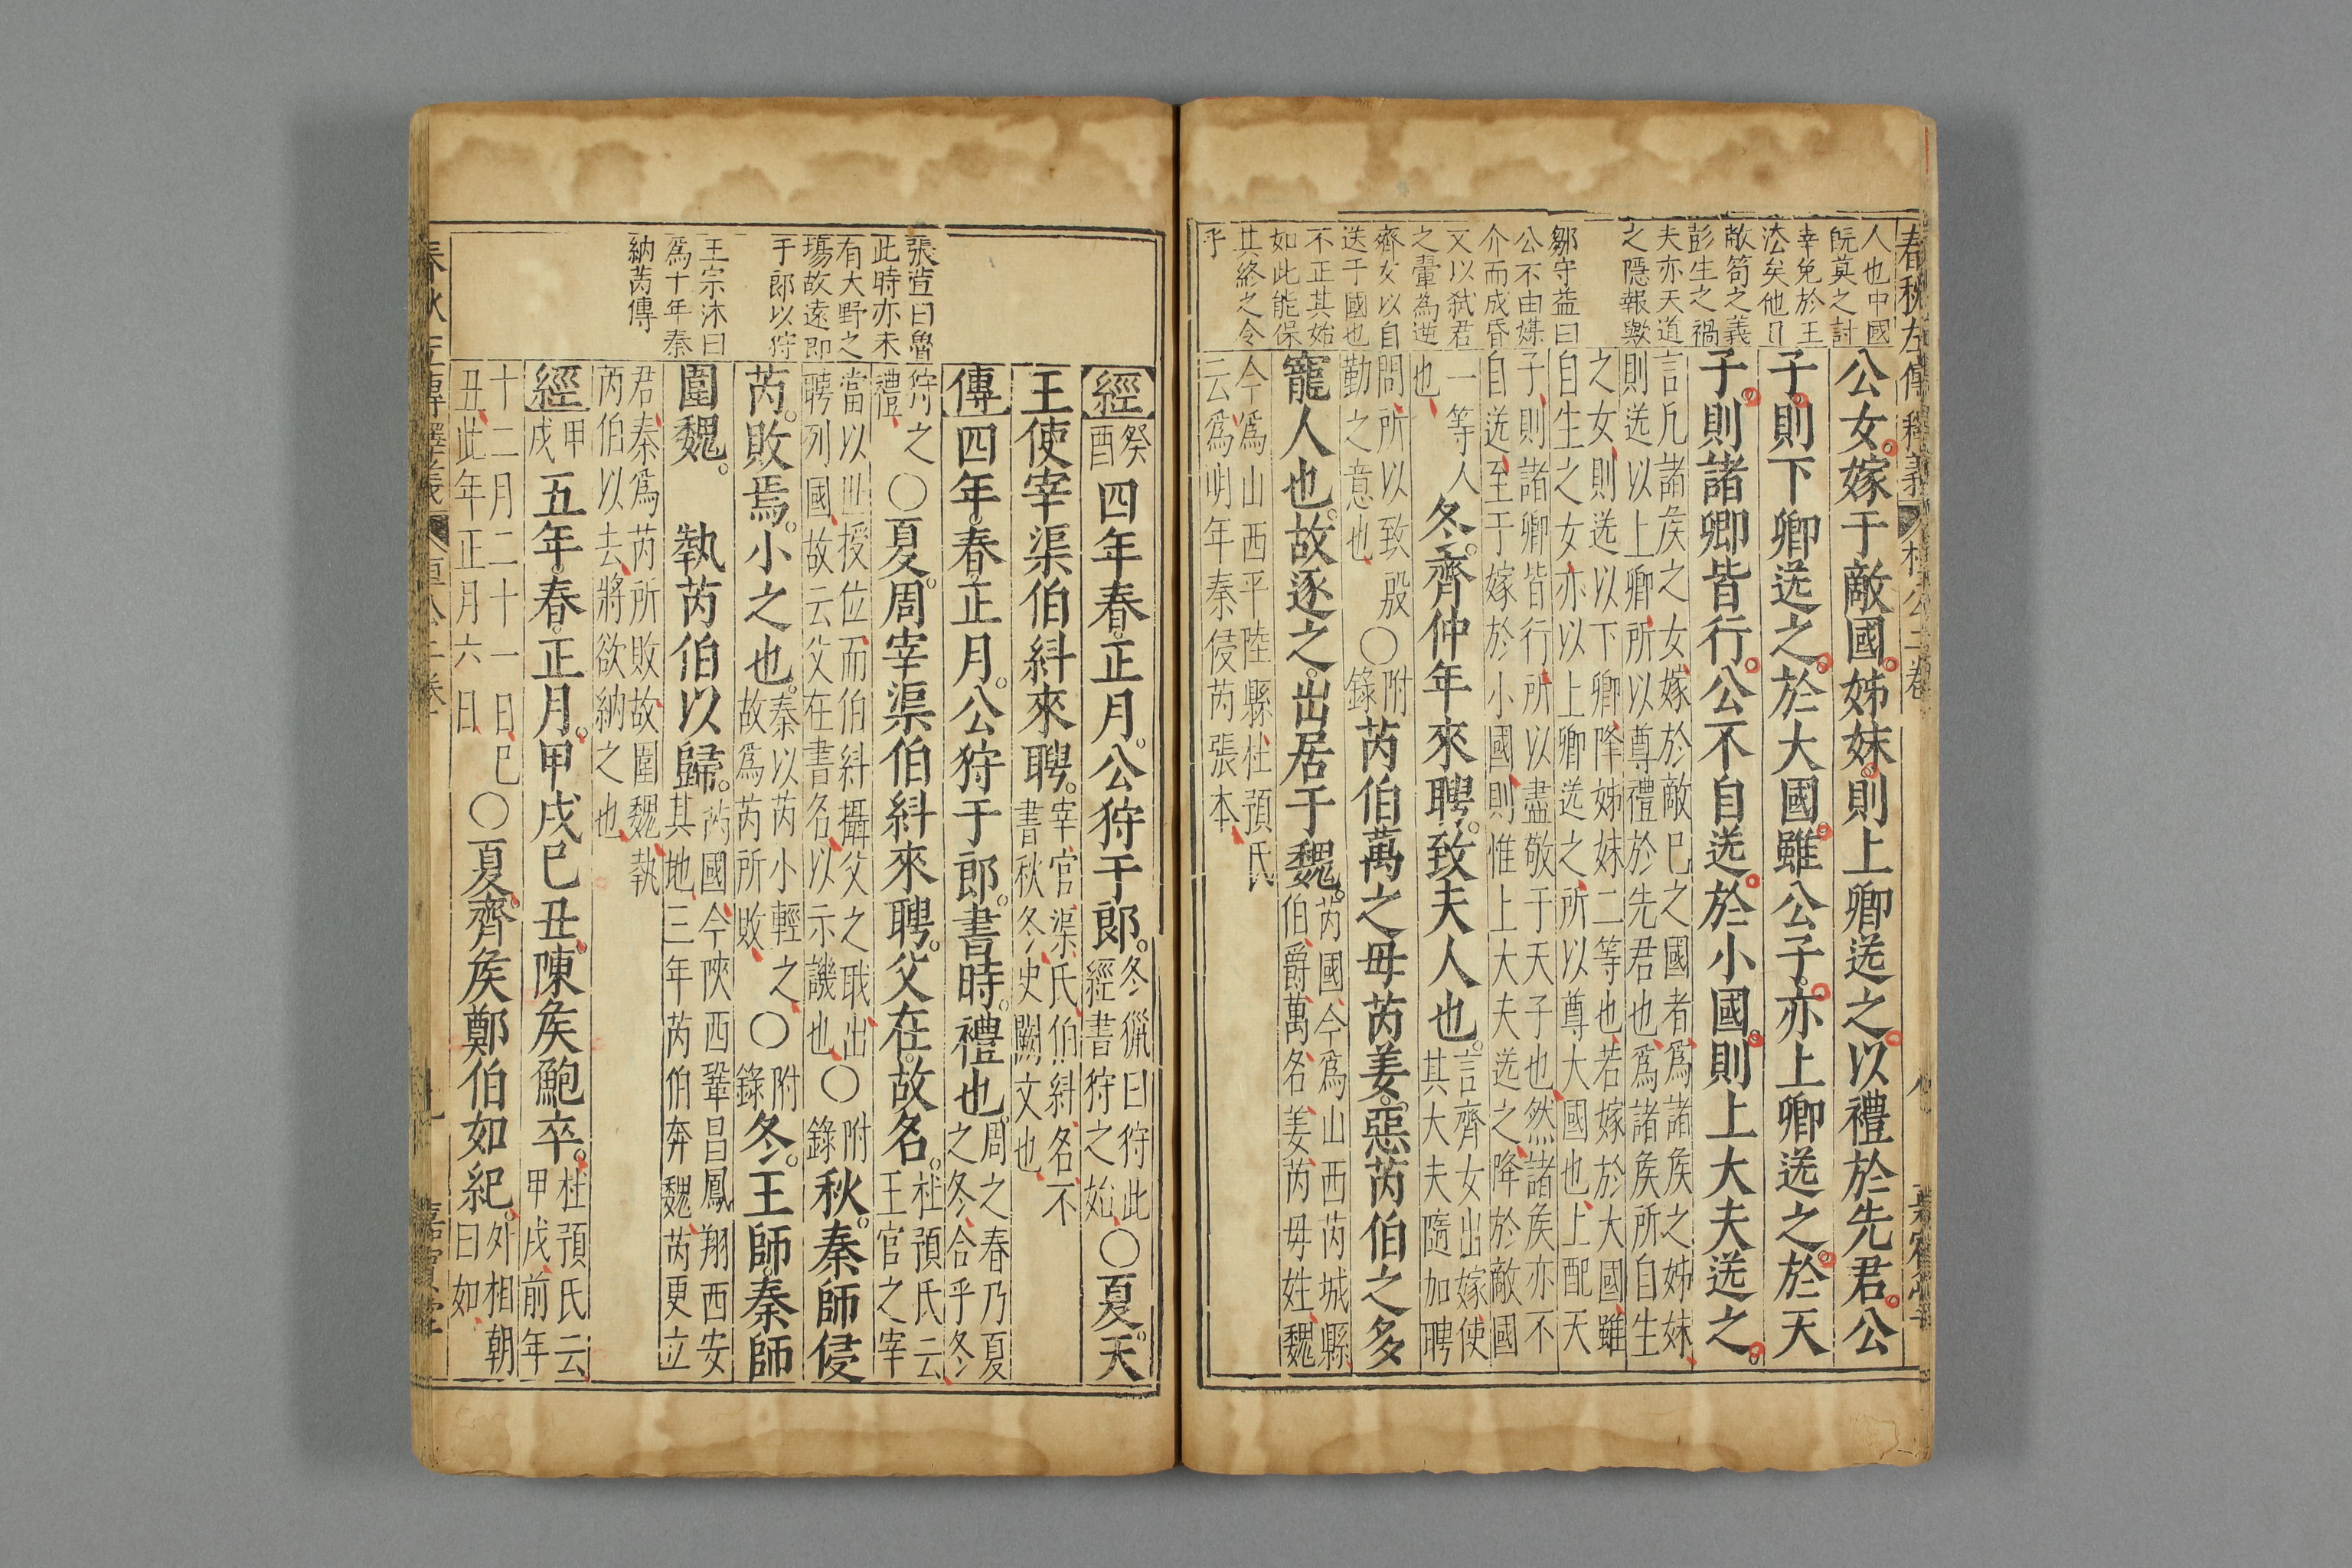 春秋左傳釋義 桓公二卷
人也中國
旣莫之討
幸免於王
法矣他日
敝笱之義
彭生之禍
夫亦天道
之隱報歟
鄒守益曰
公不由媒
介而成昏
又以弒君
之翬為逆
齊女以自
送于國也
不正其始
如此能保
其終之令
乎
公女嫁于敵國姊妹則上卿送之以禮於先君公
子則下卿送之於大國雖公子亦上卿送之於天
子則諸卿皆行公不自送於小國則上大夫送之
言凡諸矦之女嫁於敵巳之國者爲諸矦之姊妹
則送以上卿所以尊禮於先君也爲諸矦所自生
之女則送以下卿降姊妹二等也若嫁於大國雖
自生之女亦以上卿送之所以尊大國也上配天
子則諸卿皆行所以盡敬于天子也然諸矦亦不
自送至于嫁於小國則惟上大夫送之降於敵國
一等人
也
冬齊仲年來聘致夫人也
言齊女出嫁使
其大夫隨加聘
問所以致殷
勤之意也
〇附
錄
芮伯萬之毋芮姜惡芮伯之多
寵人也故逐之出居于魏
芮國今爲山西芮城縣
伯爵萬名姜芮毋姓魏
今爲山西平陸縣杜預氏
云爲明年秦侵芮張本
張萱曰魯
此時亦未
有大野之
場故遠即
于郎以狩
王宗沐曰
爲十年秦
納芮傳
經
癸
酉
四年春正月公狩于郎
冬獵曰狩此
經書狩之始
〇夏天
王使宰渠伯糾來聘
宰官渠氏伯糾名不
書秋冬史闕文也
傳四年春正月公狩于郎書時禮也
周之春乃夏
之冬合乎冬
狩之
禮
〇夏周宰渠伯糾來聘父在故名
杜預氏云
王官之宰
當以世授位而伯糾攝父之職出
聘列國故云父在書名以示譏也
〇附
錄
秋秦師侵
芮敗焉小之也
秦以芮小輕之
故爲芮所敗
〇附
錄
冬王師秦師
圍魏 執芮伯以歸
芮國今陝西鞏昌鳳翔西安
其地三年芮伯奔魏芮更立
君秦爲芮所敗故圍魏執
芮伯以去將欲納之也
經
甲
戌
五年春正月甲戌巳丑陳矦鮑卒
杜預氏云
甲戌前年
十二月二十一日巳
丑此年正月六日
〇夏齊矦鄭伯如紀
外相朝
曰如
春秋左傳釋義 桓公二卷 九 嘉賓堂